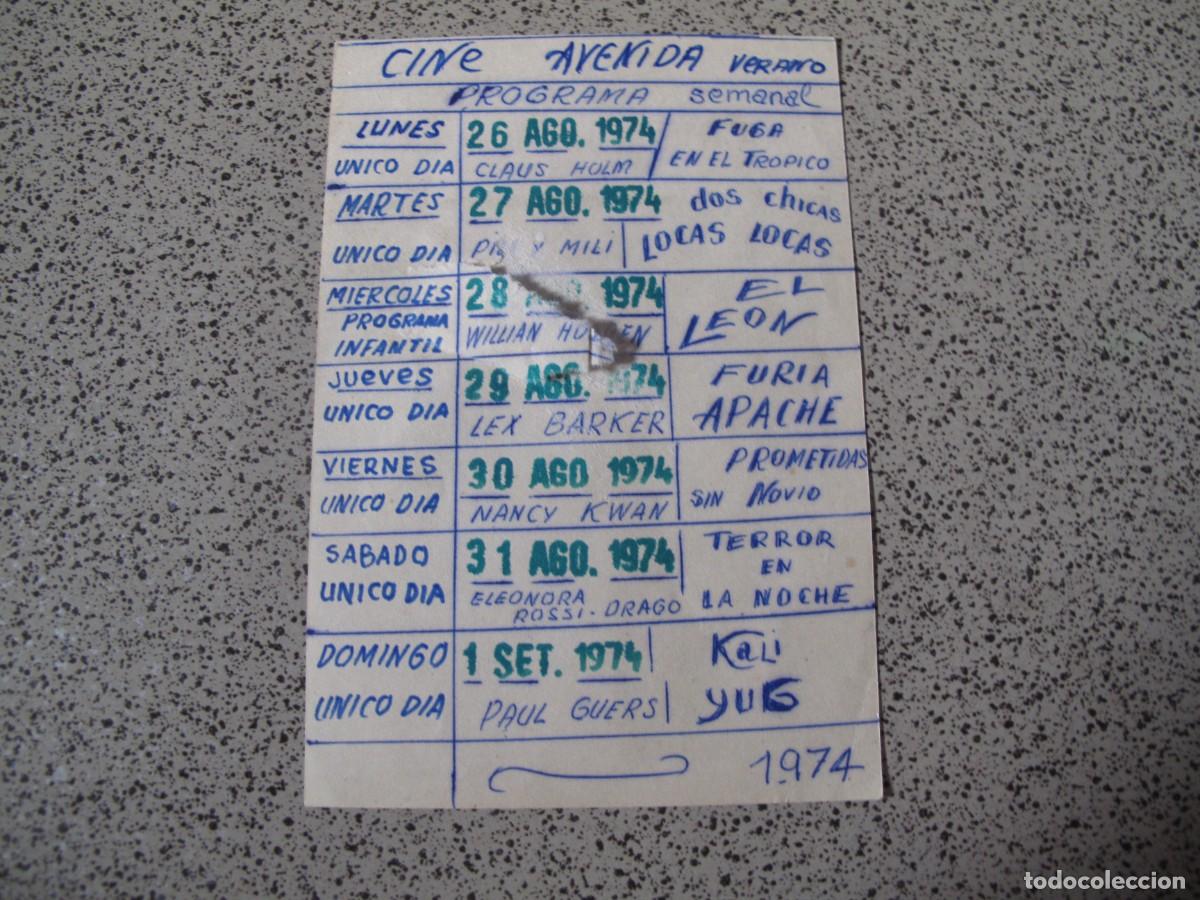 CINE AVENIDA VERANO
PROGRAMA semanal
LUNES 26 AGO. 1974 FUGA
UNICO DIA CLAUS HOLM EN EL TROPICO
MARTES 27 AGO. 1974 dos chicas
UNICO DIA Y MILI LOCAS LOCAS
MIERCOLES 28 1974 EL
PROGRAMA WILLIAN LEON
INFANTIL
JUEVES 29 AGO. 1974 FURIA
UNICO DIA LEX BARKER APACHE
VIERNES 30 AGO 1974 PROMETIDAS
UNICO DIA NANCY KWAN SIN NOVIO
SABADO 31 AGO. 1974 TERROR
EN
UNICO DIA ELEONORA LA NOCHE
ROSSI-DRAGO
DOMINGO 1 SET. 1974 Kali
UNICO DIA PAUL GUERS YUG
1974
todocoleccion